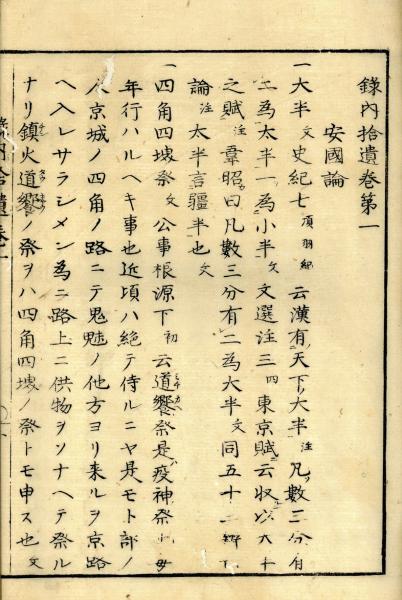 錄內拾遺卷第一
安國論
一大半文史紀七項羽紀云漢有天下大半注凡數三分有
二為太半一為小半文文選注三四東京賦云收以太半
之賦注韋昭曰凡數三分有二為大半文同五十二辨
論注太半言疆半也文
一四角四堺祭文公事根源下初云道饗祭是疫神祭
年行ハルヘキ事也近頃ハ絶テ侍ルニヤ是モト部ノ
京城ノ四角ノ路ニテ鬼魅ノ他方ヨリ来ルヲ京路
ヘ入レサラシメン為ニ路上ニ供物ヲソナヘテ祭ル
ナリ鎮火道饗ノ祭ヲハ四角四堺ノ祭トモ申ス也文